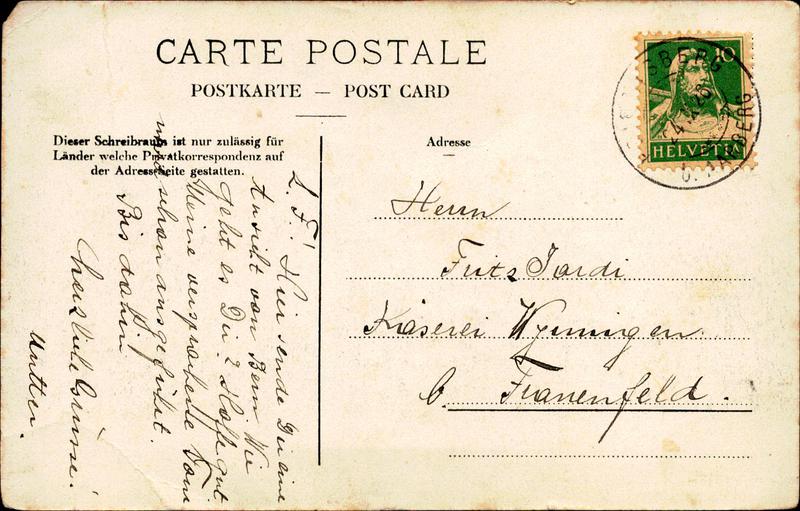 CARTE POSTALE
POSTKARTE — POST CARD
Dieser Schreibraum ist nur zulässig für
Länder welche Privatkorrespondenz auf
der Adress-Seite gestatten.
Adresse
10
HELVETIA
B. AARBERG
Herrn
Fritz Jordi
Käserei Wyningen
b. Frauenfeld.
L. F.! Hier sende Dir eine
Ansicht von Bern. Wie
geht es Dir? Hoffe gut.
Meine versprochene
schon ausgeführt.
Bis dahin
herzliche Grüsse!
Mutter.